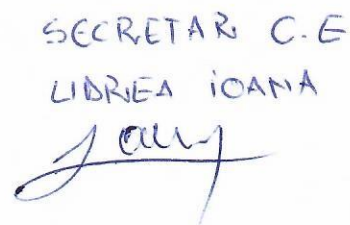 SECRETAR C.E
LIDREA IOANA